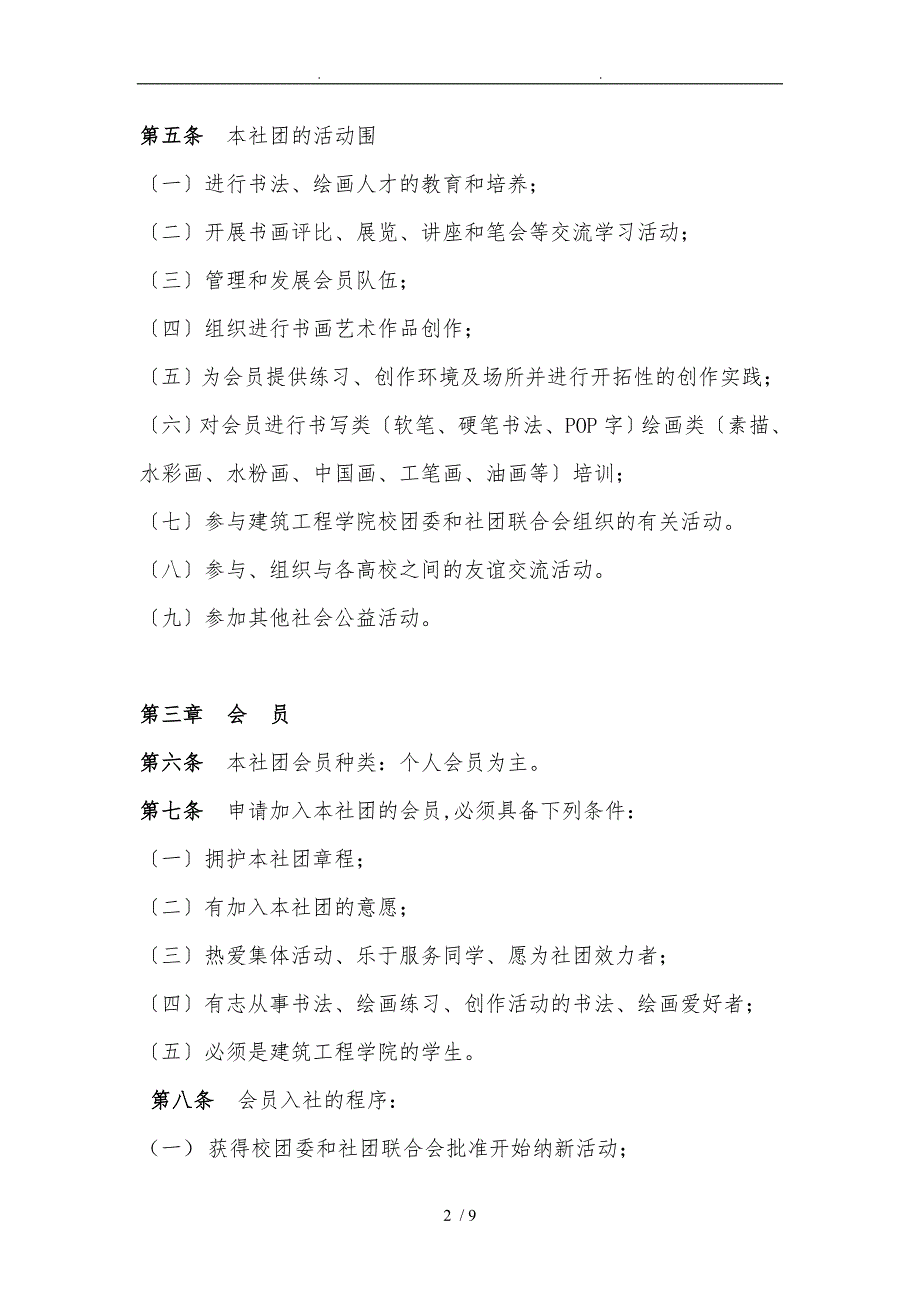 第五条　本社团的活动围
〔一〕进行书法、绘画人才的教育和培养；
〔二〕开展书画评比、展览、讲座和笔会等交流学习活动；
〔三〕管理和发展会员队伍；
〔四〕组织进行书画艺术作品创作；
〔五〕为会员提供练习、创作环境及场所并进行开拓性的创作实践；
〔六〕对会员进行书写类〔软笔、硬笔书法、POP 字〕绘画类〔素描、
水彩画、水粉画、中国画、工笔画、油画等〕培训；
〔七〕参与建筑工程学院校团委和社团联合会组织的有关活动。
〔八〕参与、组织与各高校之间的友谊交流活动。
〔九〕参加其他社会公益活动。
第三章　会　员
第六条　本社团会员种类：个人会员为主。
第七条　申请加入本社团的会员,必须具备下列条件：
〔一〕拥护本社团章程；
〔二〕有加入本社团的意愿；
〔三〕热爱集体活动、乐于服务同学、愿为社团效力者；
〔四〕有志从事书法、绘画练习、创作活动的书法、绘画爱好者；
〔五〕必须是建筑工程学院的学生。
第八条　会员入社的程序：
（一）获得校团委和社团联合会批准开始纳新活动；
2 / 9